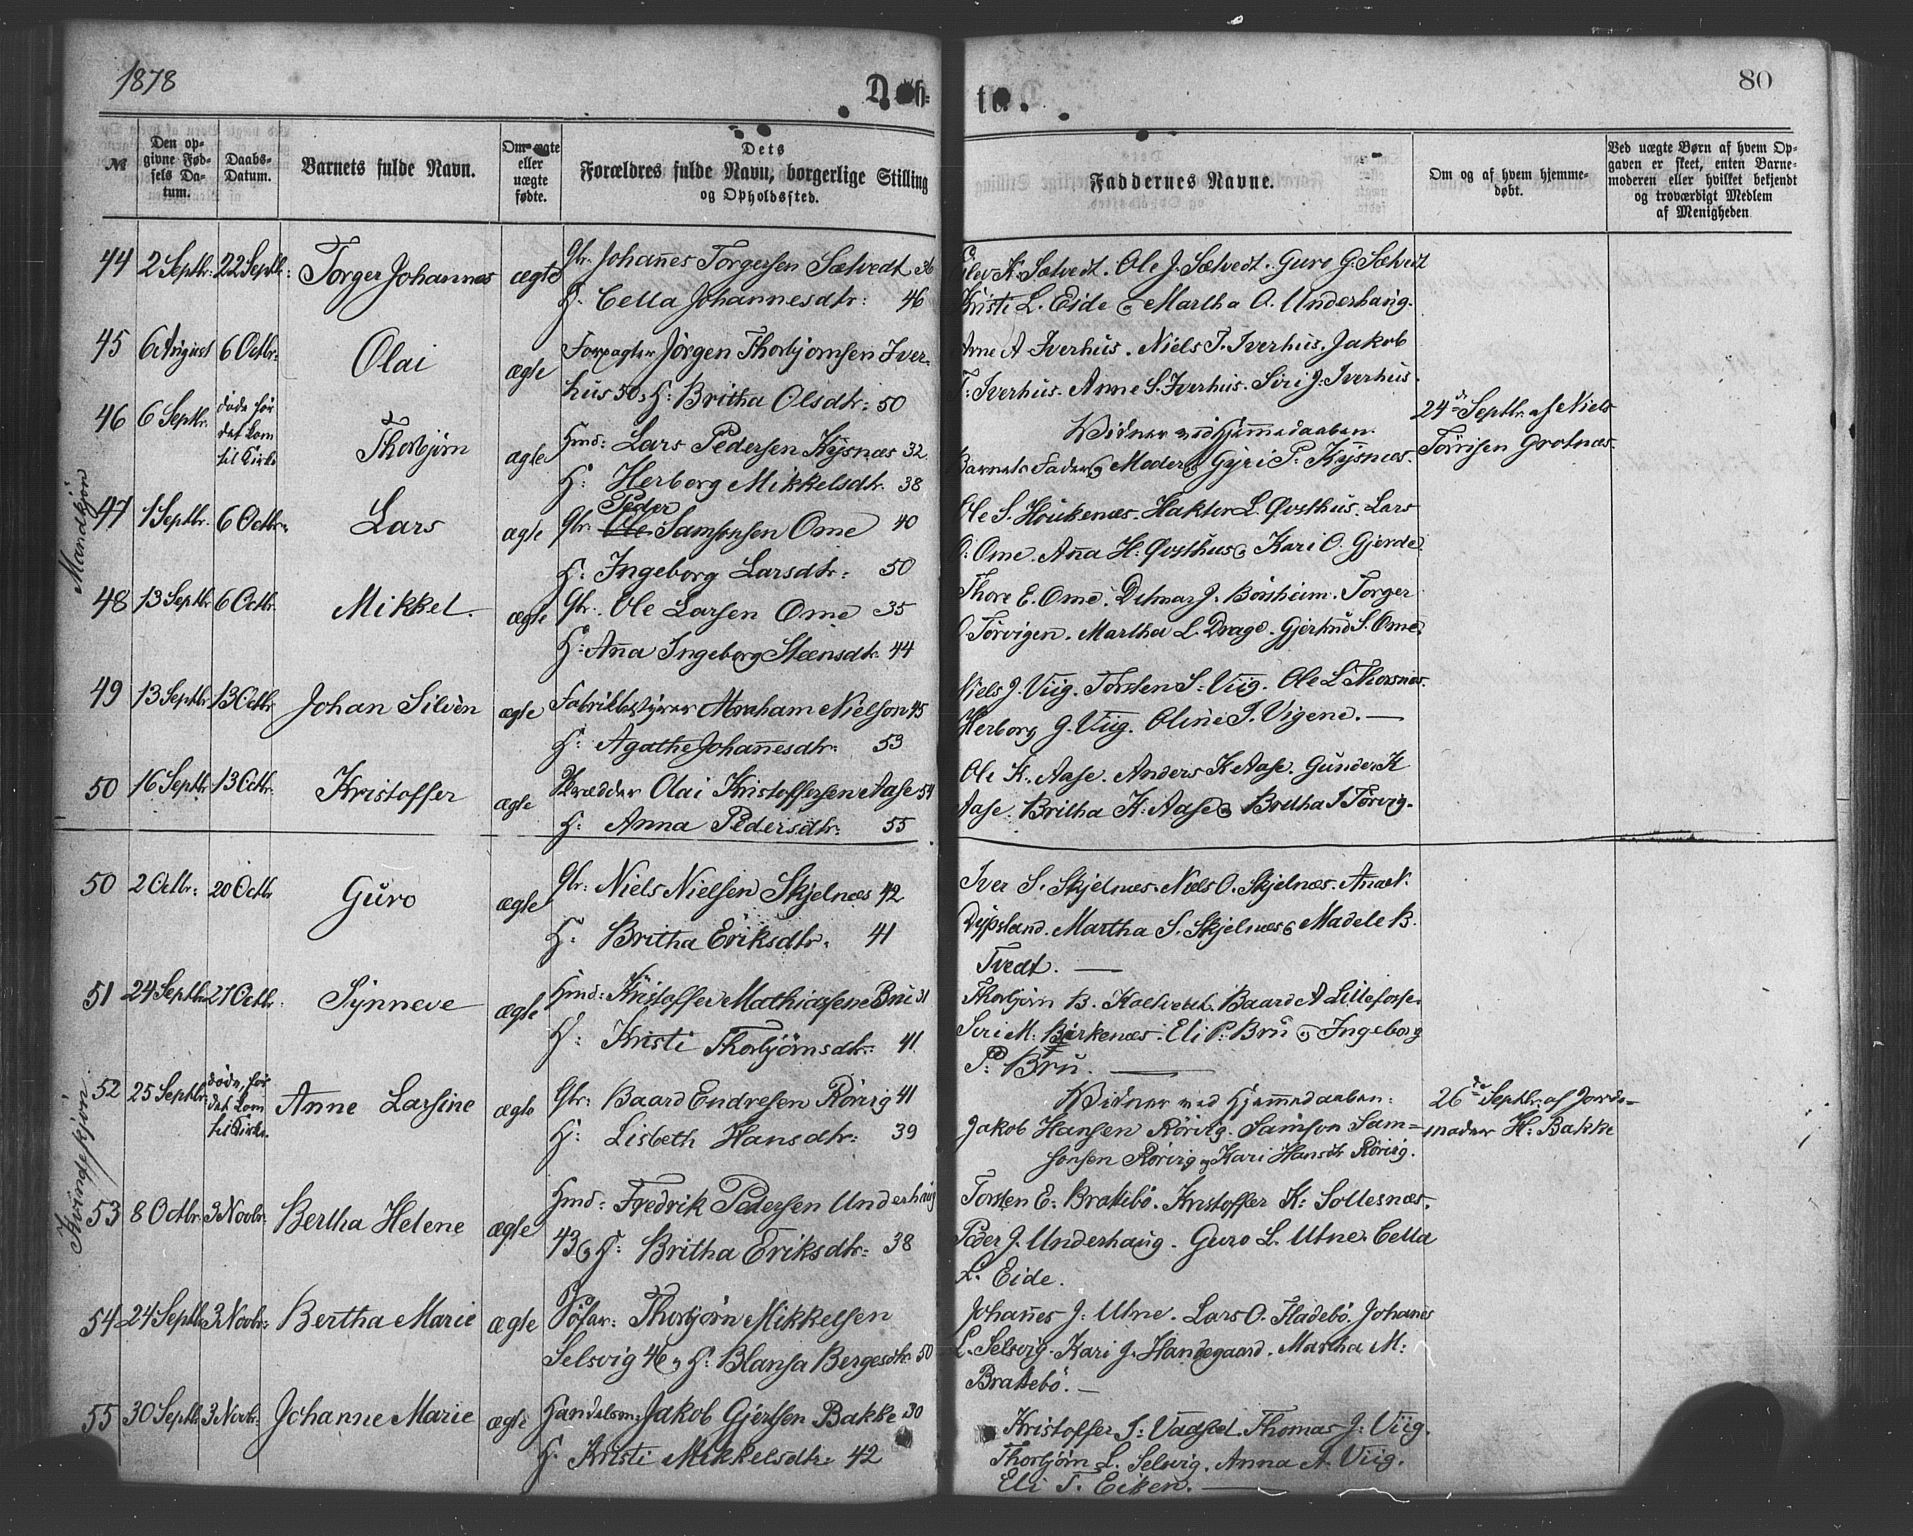 1878
Døb-
te.
80
No
Den op-
givne Fød-
sels Da-
tum.
Daabs-
Datum.
Barnets fulde Navn.
Om ægte
eller
uægte
fødte.
Dets
Forældres fulde Navn, borgerlige Stilling
og Opholdssted.
Faddernes Navne.
Om og af hvem hjemme-
døbt.
Ved uægte Børn af hvem Op-
gaven er skeet, enten Barne-
moderen eller hvilket bekjendt
og troværdigt Medlem
af Menigheden
Mandkjøn
44 2 Septbr: 22 Septbr: Torger Johannes ægte Gbr. Johañes Torgersen Sætvedt 36
H: Cella Johannesdtr: 46
K. Sætvedt. Ole J. Sætvedt. Guro G. Sætvedt
Kristi L. Eide & Martha O. Underhaug.
45 6 August 6 Octbr: Olai ægte Forpagter Jørgen Thorbjørnsen Iver-
hus 50, H: Britha Olsdtr: 50
Arne A Iverhus. Niels T. Iverhus, Jakob
T. Iverhus. Anne S. Iverhus. Siri J. Iverhus.
46 6 Septbr. døde før
det kom
til Kirke Thorbjørn ægte Hmd: Lars Pedersen Kysnæs 32
H: Herborg Mikkelsdtr. 38
Vidner ved Hjemmedaaben.
Barnets Fader og Moder og Gyri P. Kysnæs.
24de Septbr. af Niels
Torrisen Grotnæs.
47 1 Septbr. 6 Octbr. Lars ægte Peder
Gbr. Ole Samsonsen Ome 40
H: Ingeborg Larsdtr: 50
Ole S. Houkenæs. Hakter L. Qvsthus. Lars
O. Ome. Aña H: Øvsthus & Kari O. Gjerde.
48 13 Septbr 6 Octbr. Mikkel. ægte Gbr. Ole Larsen Ome 35
H: Aña Ingeborg Steensdtr. 44
Thore E. Ome. Detmar J. Børsheim. Torger
O Torvigen. Martha L. Drage. Gjertrud S. Ome.
49 13 Septbr 13 Octbr. Johan Silvèn ægte Fabrikbestyrer Abraham Nielson 45
H: Agathe Johañesdtr: 53
Niels J. Viig. Torsten S. Viig. Ole L. Thorsnæs.
Herborg G. Viig. Oline T. Vigene. —
50 16 Septbr 13 Octbr. Kristoffer ægte Skrædder Olai Kristoffersen Aase 54
H: Anna Pedersdtr: 55
Ole K. Aase. Anders K Aase. Gunder K
Aase. Britha K. Aase & Britha T Tørvig.
Kvindekjøn
50 2 Octbr. 20 Octbr Guro ægte Gbr: Niels Nielsen Skjelnæs 42
H: Britha Eriksdtr. 41
Iver S. Skjelnæs. Niels O. Skjelnæs. Aña N.
Dypsland. Martha S. Skjelnæs & Madele B.
Tvedt. —
51 24 Septbr 27 Octbr. Synneve ægte Hmd: Kristoffer Mathiasen Bru 31
H: Kristi Thorbjørnsdtr: 41
Thorbjørn B. Baard A Lillefosse.
Siri M. Birkenæs. Eli P. Bru & Ingeborg
P. Bru. —
52 25 Septbr. døde før
det kom
til Kirke. Anne Larsine ægte Gbr: Baard Endresen Rørvig 41
H: Lisbeth Hansdtr: 39
Vidner ved Hjemmedaaben:
Jakob Hansen Rørvig. Samson Sam-
sonsen Rørvig & Kari Hansdtr Rørvig.
26de Septbr. af Jorde-
moder H: Bakke
53 8 Octbr. 3 Novbr. Bertha Helene ægte Hmd: Fredrik Petersen Underhaug
43 & H: Britha Eriksdtr: 38
Torsten E. Brattebø. Kristoffer K: Soltesnæs.
Peder J. Underhaug. Guro L. Utne. Cella
L. Eide.
54 24 Septbr 3 Novbr: Bertha Marie ægte Thorbjørn Mikkelsen
Selsvig 46, H: Blansa Bergesdtr. 50
Johañes J. Utne. Lars O. Fladebø. Johañes
L. Selsvig. Kari J. Handegaard. Martha M:
Brattebø. —
55 30 Septbr 3 Novbr. Johanne Marie ægte Handelsm: Jakob Gjertsen Bakke 30
H. Kristi Mikkelsdtr. 42
Kristoffer I. Vadset. Thomas J. Viig.
Thorbjørn L. Selsvig. Anna A. Viig.
Eli T. Eiken. —